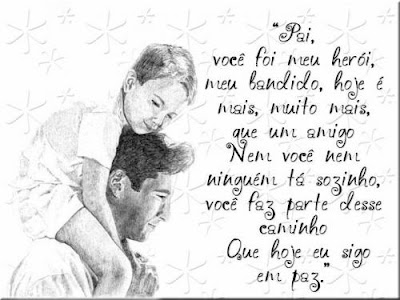 “Pai,
você foi meu herói,
meu bandido, hoje é
mais, muito mais,
que um amigo
Nem você nem
ninguém tá sozinho,
você faz parte desse
caminho
Que hoje eu sigo
em paz.”